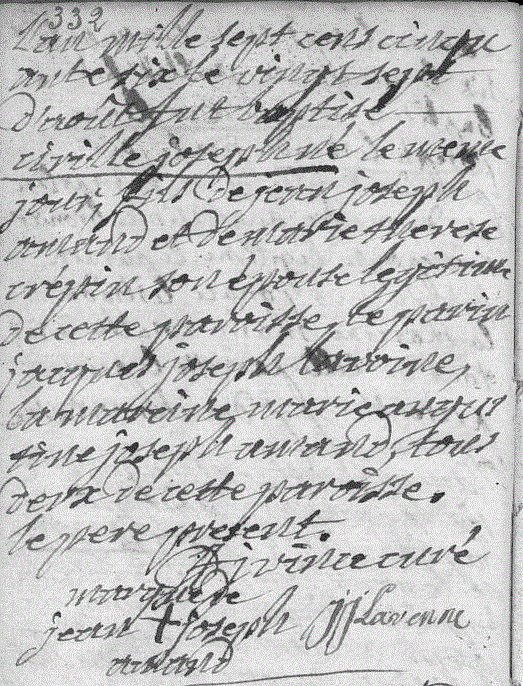 332
L'an mille sept cens cinqu
ante six le vingt sept
d'août fut baptisé
cirille joseph né le meme
jour, fils de jean joseph
amand et de marie therese
crépin son épouse legitime
de cette paroisse, le parin
jacques joseph lavoine,
la maraine marie augus
tine joseph amand, tous
deux de cette paroisse.
le pere present.
curé
marque de
jean + joseph JJ Lavenne
amand